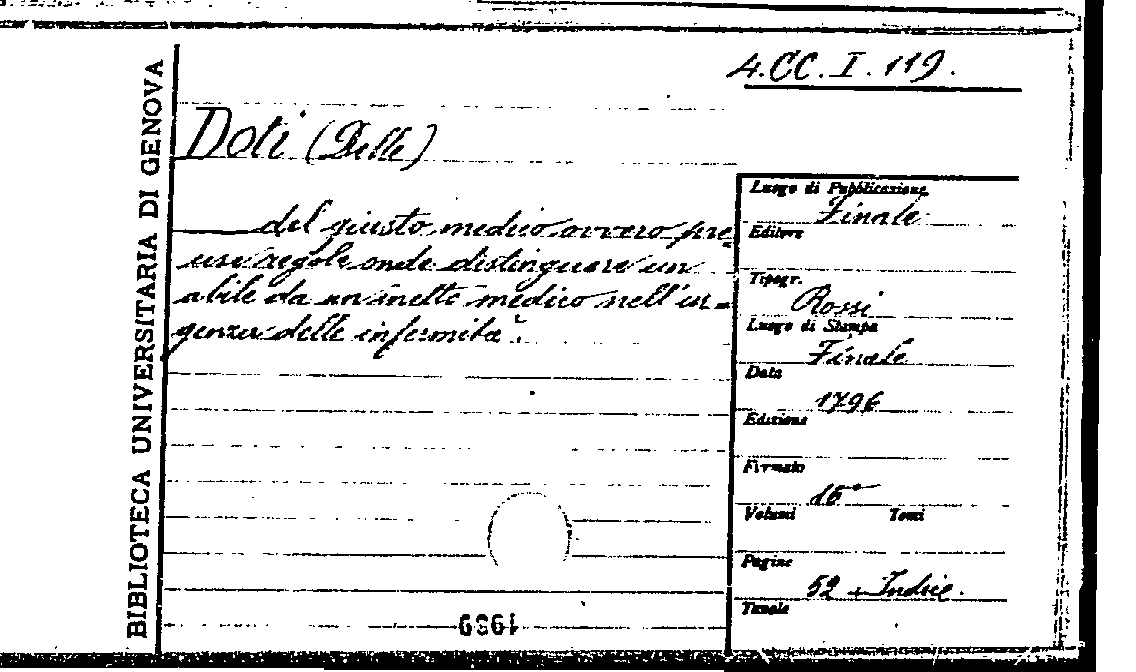 BIBLIOTECA UNIVERSITARIA DI GENOVA
4.CC.I.119.
Doti (Delle)
del giusto medico ovvero pre=
cise regole onde distinguere un
abile da un inetto medico nell'ur=
genza delle infermità.
Luogo di Pubblicazione
Finale
Editore
Tipogr.
Rossi
Luogo di Stampa
Finale
Data
1796
Edizione
Formato
16°
Volumi Tomi
Pagine
52 + Indice.
Tavole